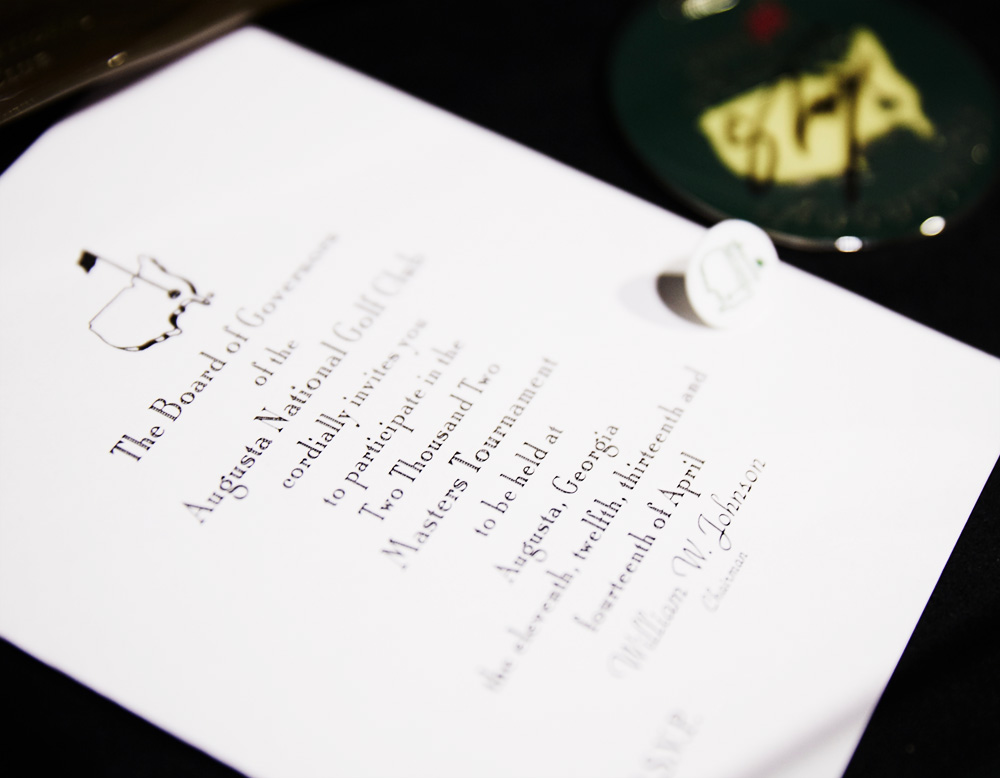 The Board of Governors
of the
Augusta National Golf Club
cordially invites you
to participate in the
Two Thousand Two
Masters Tournament
to be held at
Augusta, Georgia
this eleventh, twelfth, thirteenth and
fourteenth of April
William W. Johnson
Chairman